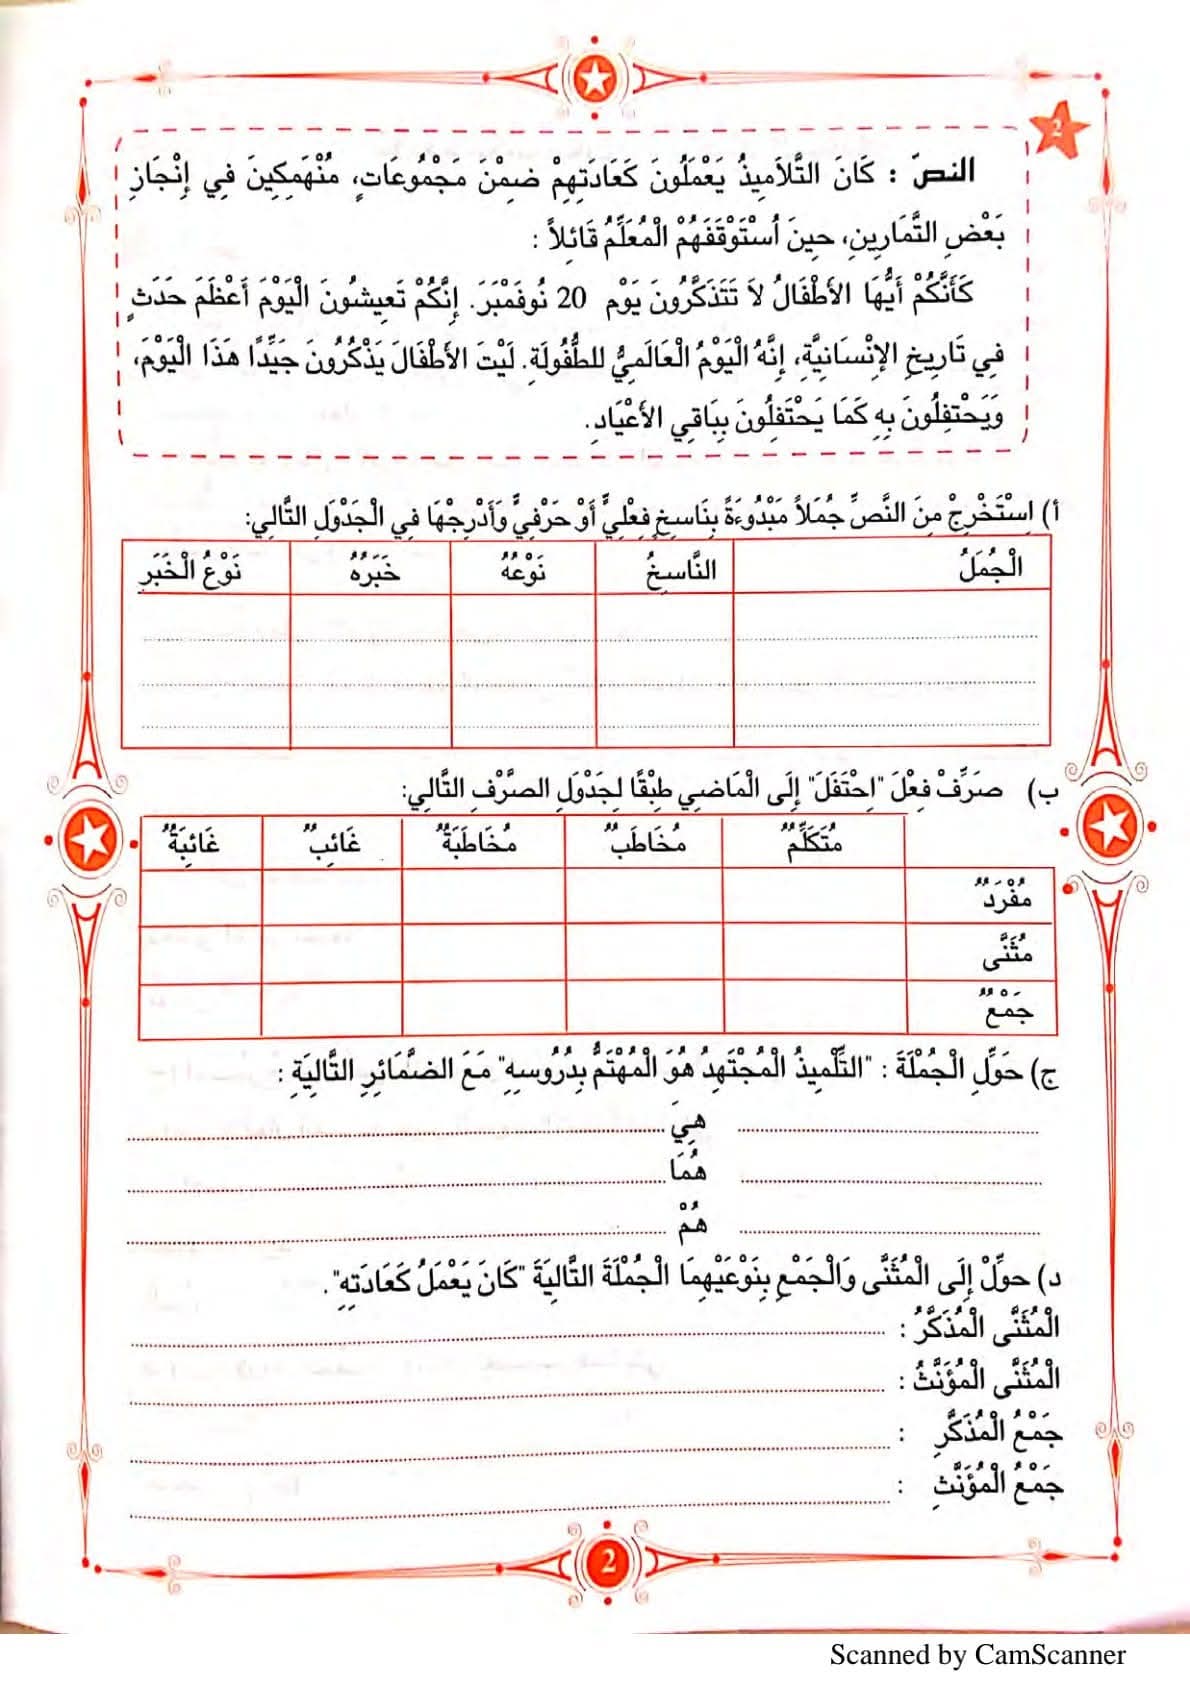 2
النصّ : كَانَ التَّلاَمِيذُ يَعْمَلُونَ كَعَادَتِهِمْ ضِمْنَ مَجْمُوعَاتٍ، مُنْهَمِكِينَ فِي إِنْجَازِ
بَعْضِ التَّمَارِينِ، حِينَ اُسْتَوْقَفَهُمْ الْمُعَلِّمُ قَائِلاً :
كَأَنَّكُمْ أَيُّهَا الأَطْفَالُ لاَ تَتَذَكَّرُونَ يَوْم 20 نُوفَمْبَرَ. إِنَّكُمْ تَعِيشُونَ الْيَوْمَ أَعْظَمَ حَدَثٍ
فِي تَارِيخِ الإِنْسَانِيَّةِ، إِنَّهُ الْيَوْمُ الْعَالَمِيُّ للطُّفُولَةِ. لَيْتَ الأَطْفَالَ يَذْكُرُونَ جَيِّدًا هَذَا الْيَوْمَ،
وَيَحْتَفِلُونَ بِهِ كَمَا يَحْتَفِلُونَ بِبَاقِي الأَعْيَادِ.
أ) اِسْتَخْرِجْ مِنَ النَّصِّ جُمَلاً مَبْدُوءَةً بِنَاسِخٍ فِعْلِيٍّ أَوْ حَرْفِيٍّ وَأَدْرِجْهَا فِي الْجَدْوَلِ التَّالِي:
الْجُمَلُ النَّاسِخُ نَوْعُهُ خَبَرُهُ نَوْعُ الْخَبَرِ
ب) صَرِّفْ فِعْلَ "اِحْتَفَلَ" إِلَى الْمَاضِي طِبْقًا لِجَدْوَلِ الصَّرْفِ التَّالِي:
مُتَكَلِّمٌ مُخَاطَبٌ مُخَاطَبَةٌ غَائِبٌ غَائِبَةٌ
مُفْرَدٌ
مُثَنَّى
جَمْعٌ
ج) حَوِّلِ الْجُمْلَةَ : "التِّلْمِيذُ الْمُجْتَهِدُ هُوَ الْمُهْتَمُّ بِدُرُوسِهِ" مَعَ الضَّمَائِرِ التَّالِيَةِ :
هِيَ
هُمَا
هُمْ
د) حوِّلْ إِلَى الْمُثَنَّى وَالْجَمْعِ بِنَوْعَيْهِمَا الْجُمْلَةَ التَّالِيَةَ "كَانَ يَعْمَلُ كَعَادَتِهِ".
الْمُثَنَّى الْمُذَكَّرُ :
الْمُثَنَّى الْمُؤَنَّثُ :
جَمْعُ الْمُذَكَّرِ :
جَمْعُ الْمُؤَنَّثِ :
2
Scanned by CamScanner